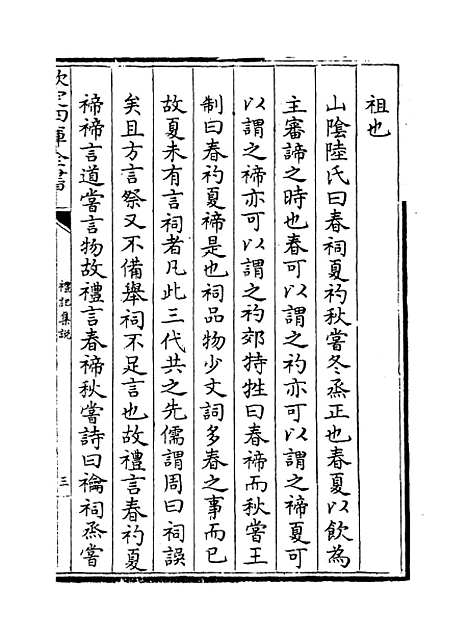 祖也
山陰陸氏曰春祠夏礿秋嘗冬烝正也春夏以飲為
主審諦之時也春可以謂之礿亦可以謂之禘夏可
以謂之禘亦可以謂之礿郊特牲曰春禘而秋嘗王
制曰春礿夏禘是也祠品物少文詞多春之事而已
故夏未有言祠者凡此三代共之先儒謂周曰祠誤
矣且方言祭又不備舉祠不足言也故禮言春礿夏
禘禘言道嘗言物故禮言春禘秋嘗詩曰禴祠烝嘗
欽定四庫全書
禮記集說
三